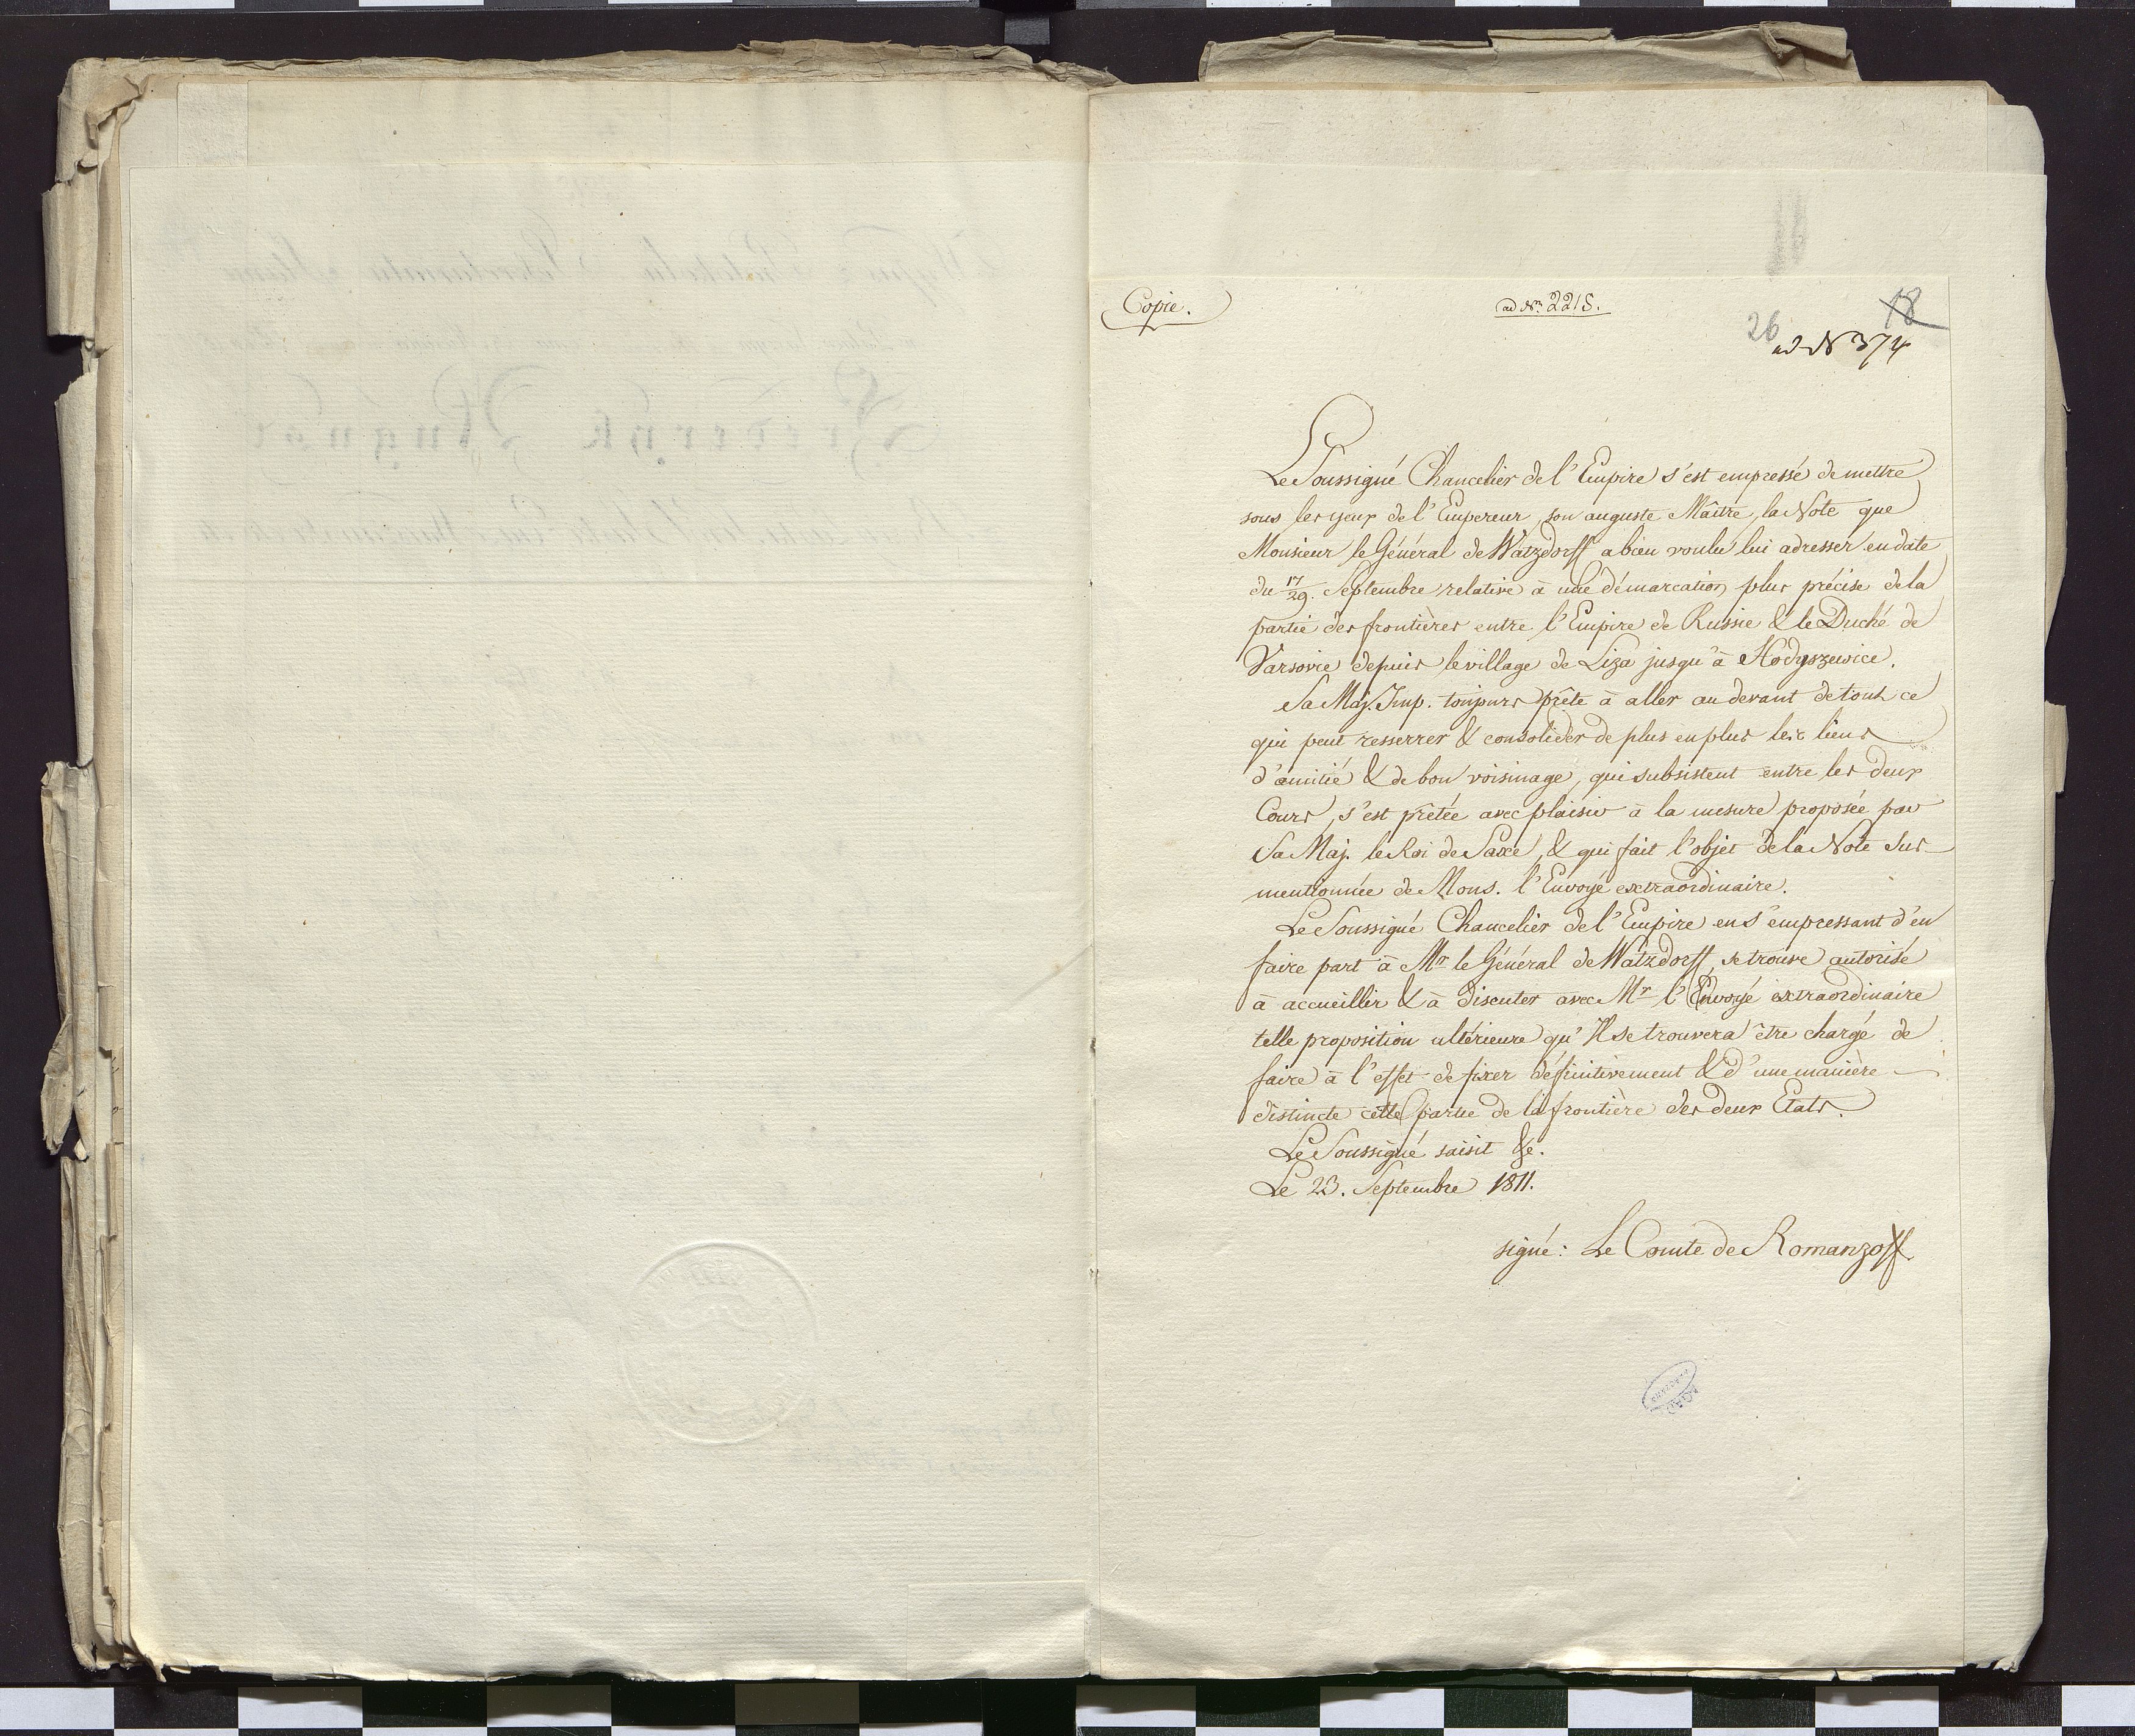 Copie.
ad Nr. 2215.
18
26
ad N 374
Le Soussigné Chancelier de l'Empire s'est empressé de mettre
sous les yeux de l'Empereur, son auguste Maître, la Note que
Monsieur le Général de Watzdorff a bien voulu lui adresser en date
du 17/29. Septembre relative à une démarcation plus précise de la
partie des frontières entre l'Empire de Russie & le Duché de
Varsovie depuis le village de Liza jusqu'à Hodyszewice.
Sa Maj. Imp. toujours prête à aller au devant de tout ce
qui peut resserrer & consolider de plus en plus les liens
d'amitié & de bon voisinage, qui subsistent entre les deux
Cours, s'est prêtée avec plaisir à la mesure proposée par
Sa Maj. le Roi de Saxe, & qui fait l'objet de la Note sus-
mentionnée de Mons. l'Envoyé extraordinaire.
Le Soussigné Chancelier de l'Empire en s'empressant d'en
faire part à Mr le Général de Watzdorff, se trouve autorisé
à accueillir & à discuter avec Mr l'Envoyé extraordinaire
telle proposition ultérieure qu'Il se trouvera être chargé de
faire à l'effet de fixer définitivement & d'une manière
distincte cette partie de la frontière des deux Etats.
Le Soussigné saisit &c.
Le 23. Septembre 1811.
signé: Le Comte de Romanzoff.